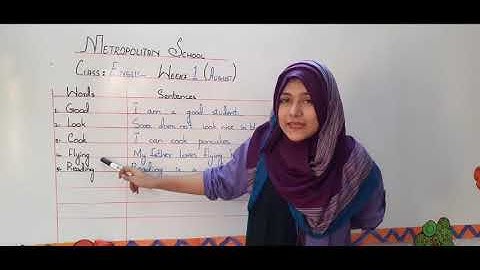 METROPOLITAN SCHOOL
CLASS: WEEK: 1 (AUGUST)
Words Sentences
1. Good I am a good student
2. Look does not look nice in
3. Cook I can cook pancakes
4. Flying My father loves flying
5. Reading Reading is a